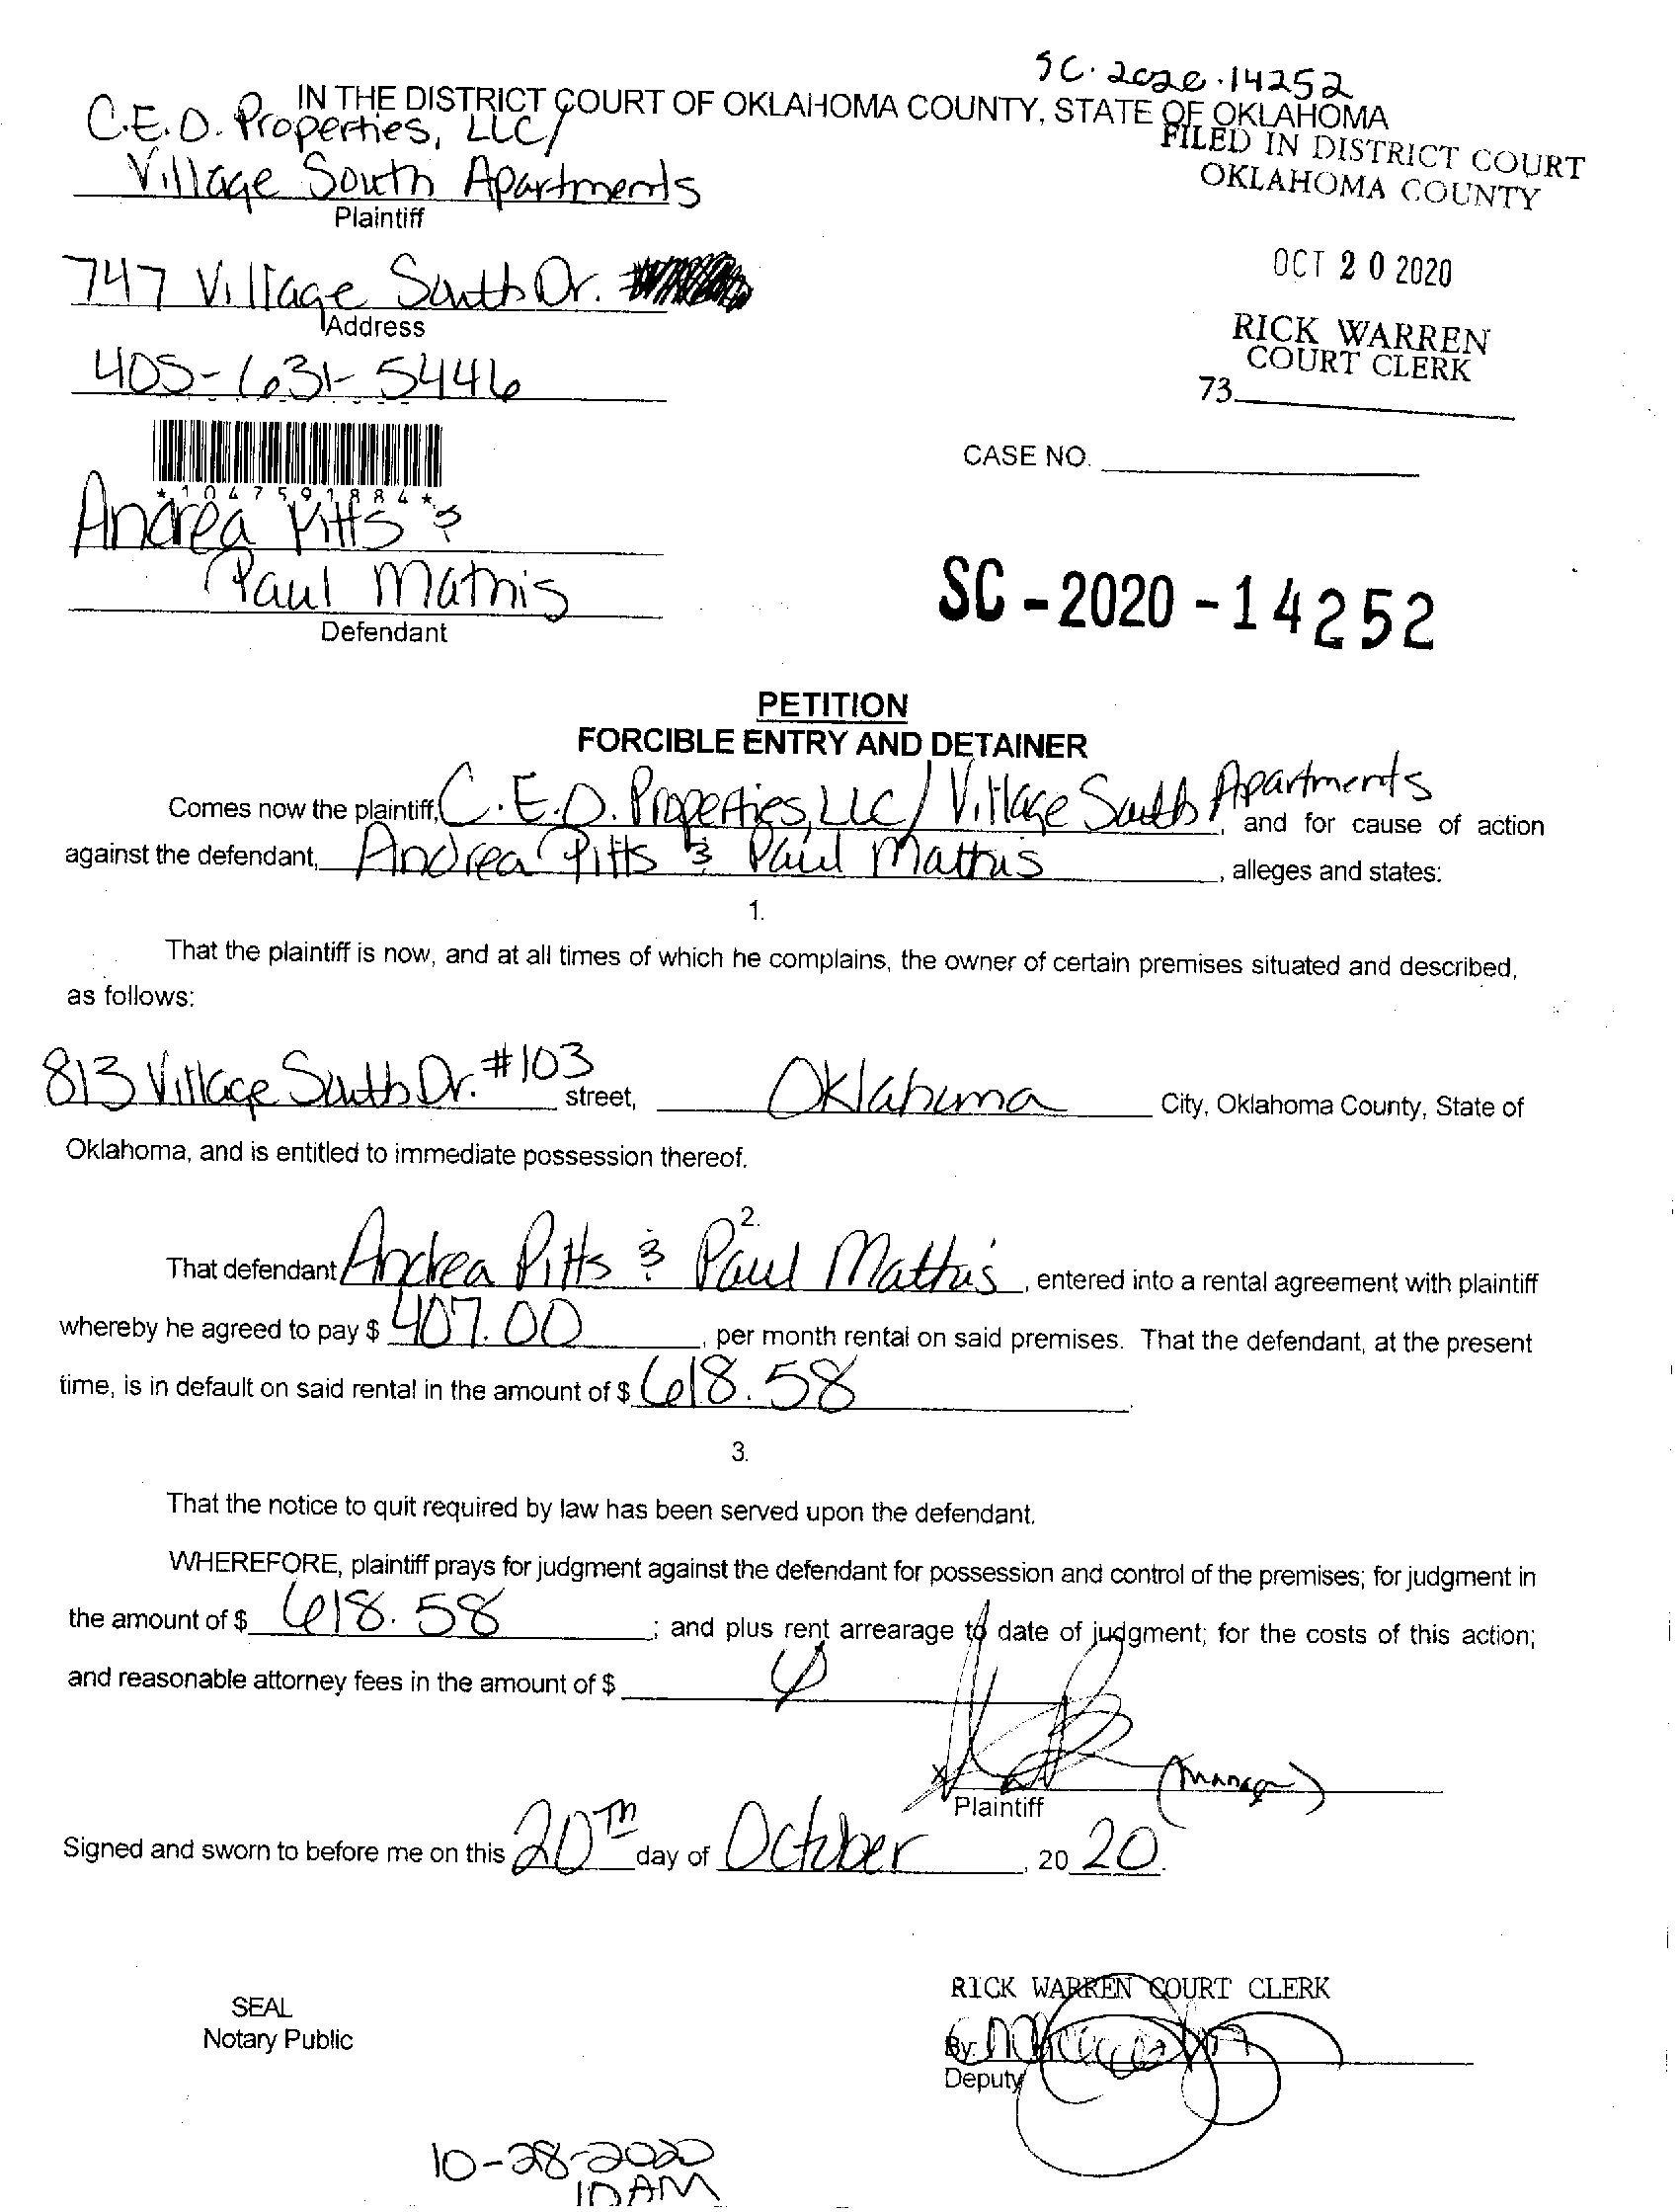 SC-2020-14252
IN THE DISTRICT COURT OF OKLAHOMA COUNTY, STATE OF OKLAHOMA
C.E.O. Properties, LLC/
Village South Apartments
Plaintiff
FILED IN DISTRICT COURT
OKLAHOMA COUNTY
OCT 20 2020
RICK WARREN
COURT CLERK
73
747 Village South Dr.
Address
405-631-5446
*1047591884*
CASE NO.
Andrea Pitts &
Paul Mathis
Defendant
SC-2020-14252
PETITION
FORCIBLE ENTRY AND DETAINER
Comes now the plaintiff, C.E.O. Properties, LLC/Village South Apartments, and for cause of action
against the defendant, Andrea Pitts & Paul Mathis, alleges and states:
1.
That the plaintiff is now, and at all times of which he complains, the owner of certain premises situated and described,
as follows:
813 Village South Dr. #103 street, Oklahoma City, Oklahoma County, State of
Oklahoma, and is entitled to immediate possession thereof.
2.
That defendant Andrea Pitts & Paul Mathis, entered into a rental agreement with plaintiff
whereby he agreed to pay $ 407.00, per month rental on said premises. That the defendant, at the present
time, is in default on said rental in the amount of $ 618.58.
3.
That the notice to quit required by law has been served upon the defendant.
WHEREFORE, plaintiff prays for judgment against the defendant for possession and control of the premises; for judgment in
the amount of $ 618.58; and plus rent arrearage to date of judgment; for the costs of this action;
and reasonable attorney fees in the amount of $
X (manager)
Plaintiff
Signed and sworn to before me on this 20TH day of October, 2020.
RICK WARREN COURT CLERK
SEAL
Notary Public
By
Deputy
10-28-2020
10AM